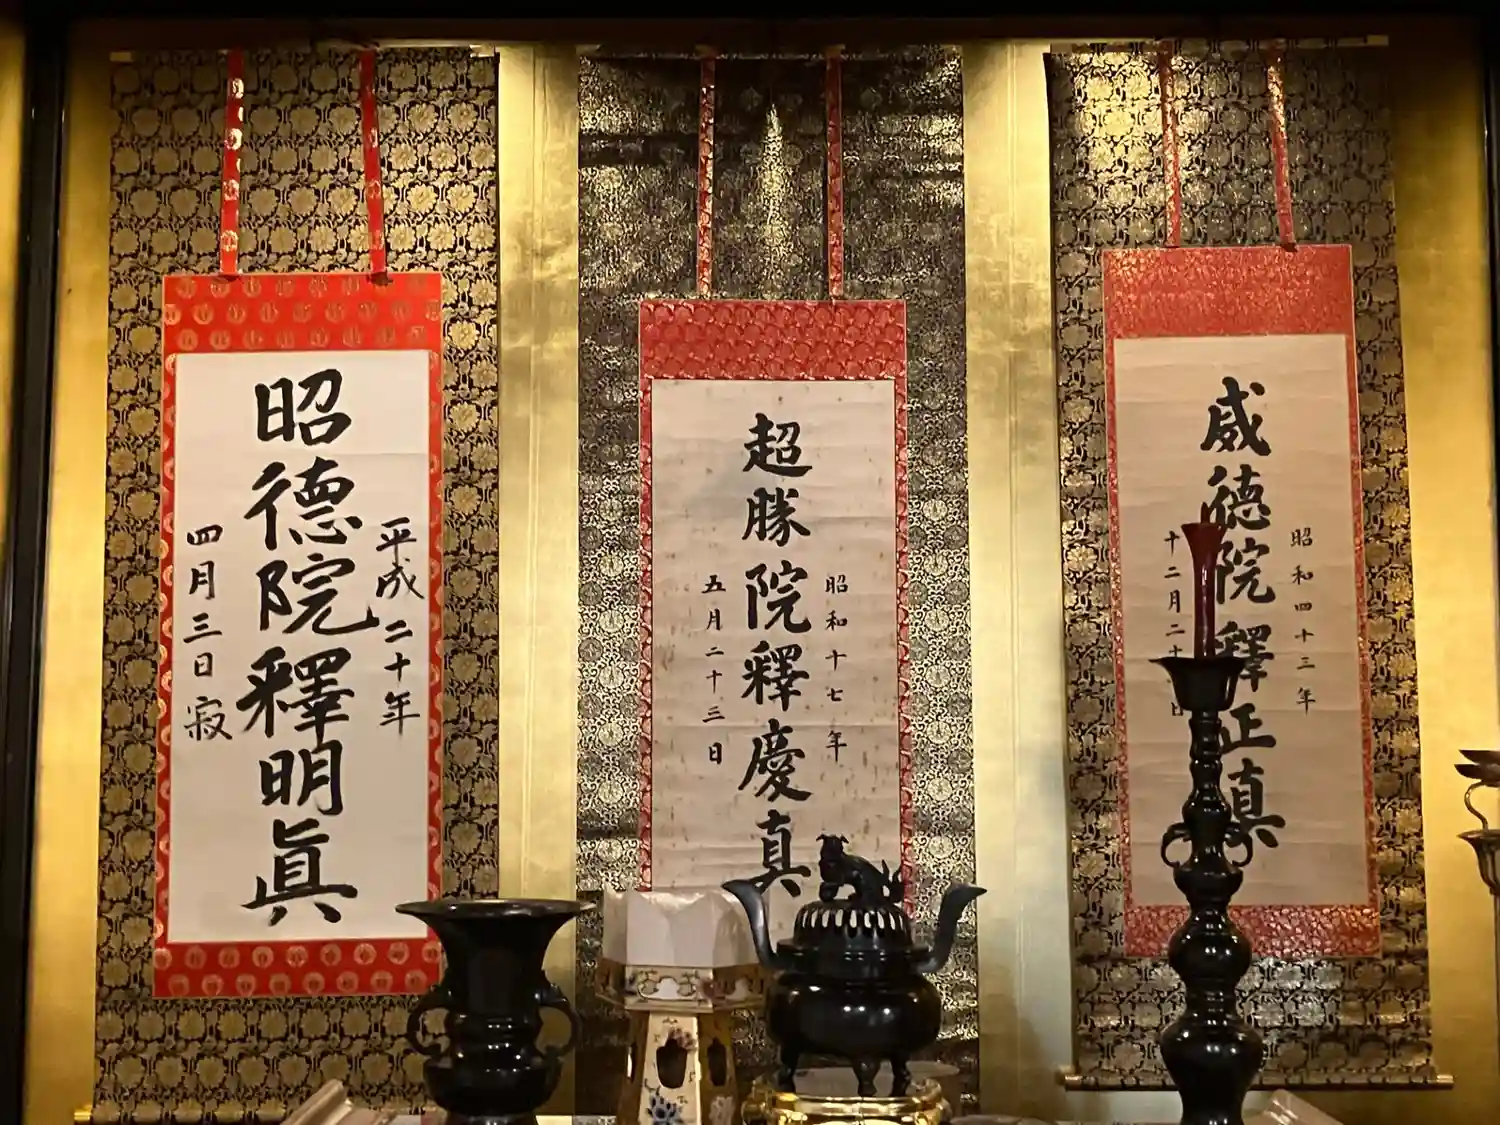 昭和四十三年
威徳院釋正真
十二月二十日
昭和十七年
超勝院釋慶真
五月二十三日
平成二十年
昭德院釋明眞
四月三日寂